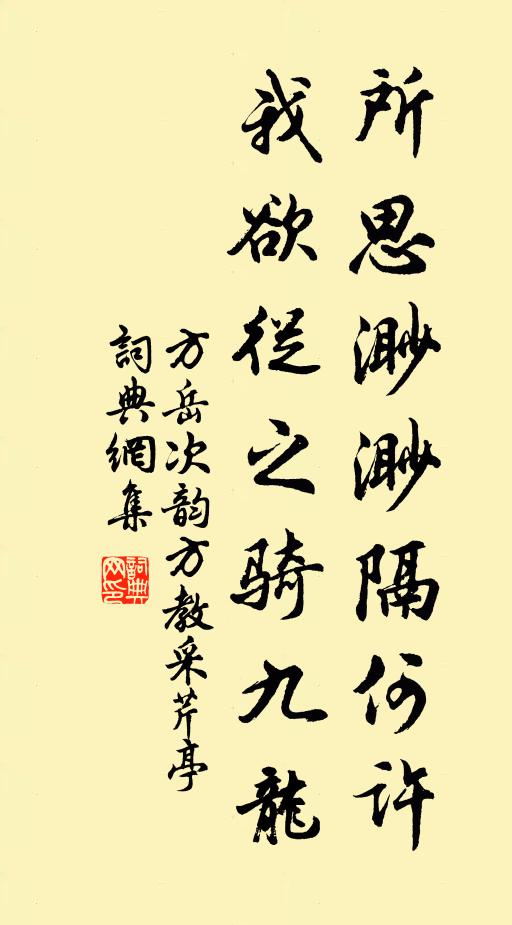 所思渺渺隔何許
我欲從之騎九龍
方岳次韵方教采芹亭
詞典網集
詞典網印